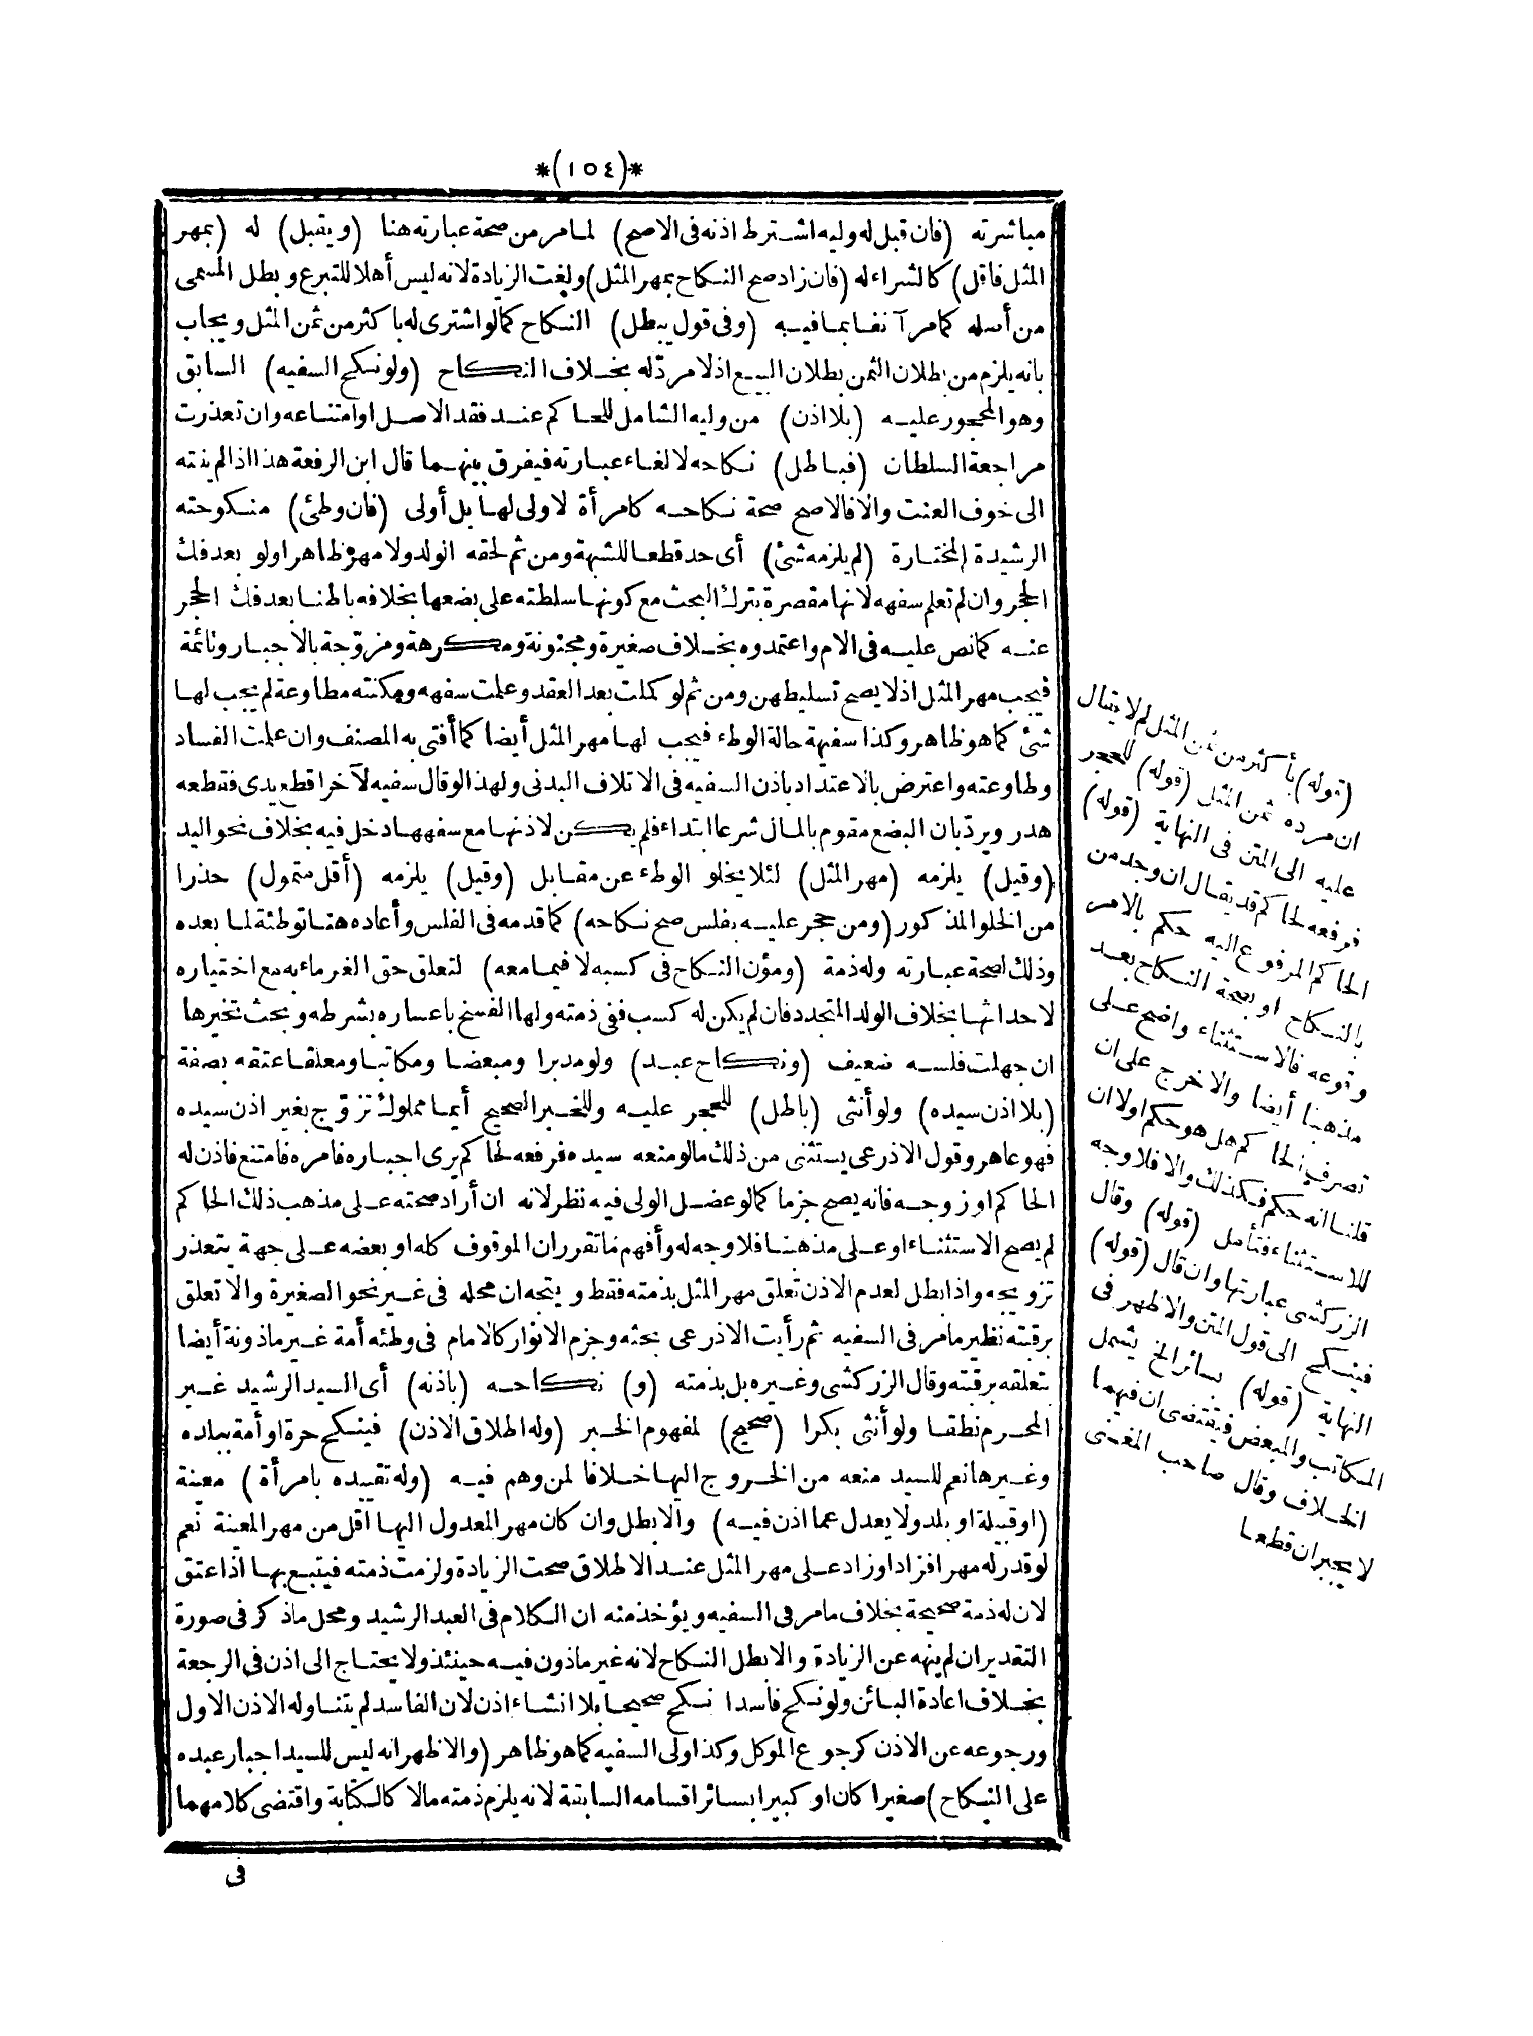 *(١٥٤)*
مباشرته (فان قبل له وليه اشترط اذنه فى الاصح) لما مر من صحة عبارته هنا (ويقبل) له (بمهر
المثل فاقل) كالشراء له (فان زاد صح النكاح بمهر المثل) ولغت الزيادة لانه ليس أهلا للتبرع وبطل المسمى
من أصله كما مر آنفا بما فيه (وفى قول يبطل) النكاح كما لو اشترى له باكثر من ثمن المثل ويجاب
بانه يلزم من بطلان الثمن بطلان البيع اذ لا مردّ له بخلاف النكاح (ولو نكح السفيه) السابق
وهو المحجور عليه (بلا اذن) من وليه الشامل للحاكم عند فقد الاصل او امتناعه وان تعذرت
مراجعة السلطان (فباطل) نكاحه لالغاء عبارته فيفرق بينهما قال ابن الرفعة هذا اذا لم ينته
الى خوف العنت والا فالاصح صحة نكاحه كامرأة لا ولى لها بل أولى (فان وطئ) منكوحته
الرشيدة المختارة (لم يلزمه شئ) أى حد قطعا للشبهة ومن ثم لحقه الولد ولا مهر ظاهرا ولو بعد فك
الحجر وان لم تعلم سفهه لانها مقصرة بترك البحث مع كونها سلطته على بضعها بخلافه باطنا بعد فك الحجر
عنه كما نص عليه فى الام واعتمدوه بخلاف صغيرة ومجنونة ومكرهة ومزوّجة بالاجبار ونائمة
فيجب مهر المثل اذ لا يصح تسليطهن ومن ثم لو كملت بعد العقد وعلمت سفهه ومكنته مطاوعة لم يجب لها
شئ كما هو ظاهر وكذا سفيهة حالة الوطء فيجب لها مهر المثل أيضا كما أفتى به المصنف وان علمت الفساد
وطاوعته واعترض بالاعتداد باذن السفيه فى الاتلاف البدنى ولهذا لو قال سفيه لآخر اقطع يدى فقطعه
هدر ويردّ بان البضع مقوم بالمال شرعا ابتداء فلم يكن لاذنها مع سفهها دخل فيه بخلاف نحو اليد
(وقيل) يلزمه (مهر المثل) لئلا يخلو الوطء عن مقابل (وقيل) يلزمه (أقل متمول) حذرا
من الخلو المذكور (ومن حجر عليه بفلس صح نكاحه) كما قدمه فى الفلس وأعاده هنا توطئة لما بعده
وذلك لصحة عبارته وله ذمة (ومؤن النكاح فى كسبه لا فيما معه) لتعلق حق الغرماء به مع اختياره
لاحداثها بخلاف الولد المتجدد فان لم يكن له كسب ففى ذمته ولها الفسخ باعساره بشرطه وبحث تخيرها
ان جهلت فلسه ضعيف (ونكاح عبد) ولو مدبرا ومبعضا ومكاتبا ومعلقا عتقه بصفة
(بلا اذن سيده) ولو أنثى (باطل) للحجر عليه وللخبر الصحيح أيما مملوك تزوّج بغير اذن سيده
فهو عاهر وقول الاذرعى يستثنى من ذلك ما لو منعه سيده فرفعه لحاكم يرى اجباره فامره فامتنع فاذن له
الحاكم او زوجه فانه يصح جزما كما لو عضل الولى فيه نظر لانه ان أراد صحته على مذهب ذلك الحاكم
لم يصح الاستثناء او على مذهبنا فلا وجه له وأفهم ما تقرر ان الموقوف كله او بعضه على جهة يتعذر
تزويجه واذا بطل لعدم الاذن تعلق مهر المثل بذمته فقط ويتجه ان محله فى غير نحو الصغيرة والا تعلق
برقبته نظير ما مر فى السفيه ثم رأيت الاذرعى بحثه وجزم الانوار كالامام فى وطئه أمة غير ماذونة أيضا
بتعلقه برقبته وقال الزركشى وغيره بل بذمته (و) نكاحه (باذنه) أى السيد الرشيد غير
المحرم نطقا ولو أنثى بكرا (صحيح) لمفهوم الخبر (وله اطلاق الاذن) فينكح حرة او أمة ببلده
وغيرها نعم للسيد منعه من الخروج اليها خلافا لمن وهم فيه (وله تقييده بامرأة) معينة
(او قبيلة او بلد ولا يعدل عما اذن فيه) والا بطل وان كان مهر المعدول اليها اقل من مهر المعينة نعم
لو قدر له مهرا فزاد او زاد على مهر المثل عند الاطلاق صحت الزيادة ولزمت ذمته فيتبع بها اذا عتق
لان له ذمة صحيحة بخلاف ما مر فى السفيه ويؤخذ منه ان الكلام فى العبد الرشيد ومحل ما ذكر فى صورة
التقدير ان لم ينهه عن الزيادة والا بطل النكاح لانه غير ماذون فيه حينئذ ولا يحتاج الى اذن فى الرجعة
بخلاف اعادة البائن ولو نكح فاسدا نكح صحيحا بلا انشاء اذن لان الفاسد لم يتناوله الاذن الاول
ورجوعه عن الاذن كرجوع الموكل وكذا ولى السفيه كما هو ظاهر (والاظهر انه ليس للسيد اجبار عبده
على النكاح) صغيرا كان او كبيرا بسائر اقسامه السابقة لانه يلزم ذمته مالا كالكتابة واقتضى كلامهما
فى
(قوله) بأكثر من ثمن المثل لم لا يقال
ان مرده ثمن المثل (قوله) للحجر
عليه الى المتن فى النهاية (قوله)
فرفعه لحاكم قد يقال ان وجد من
الحاكم المرفوع اليه حكم بالامر
بالنكاح او بصحة النكاح بعد
وقوعه فالاستثناء واضح على
مذهبنا أيضا والا خرج على ان
تصرف الحاكم هل هو حكم اولا ان
قلنا انه حكم فكذلك والا فلا وجه
للاستثناء فتأمل (قوله) وقال
الزركشى عبارتها وان قال (قوله)
فينكح الى قول المتن والاظهر فى
النهاية (قوله) بسائر الخ يشمل
المكاتب والمبعض فيقتضى ان فيهما
الخلاف وقال صاحب المغنى
لا يجبران قطعا